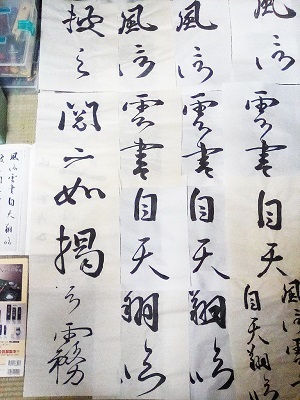 風信雲書自天
風信雲書
自天翔臨
風信雲書自天翔臨
風信雲書自天翔臨
披之閲之如揭雲霧
風信雲書自天翔臨